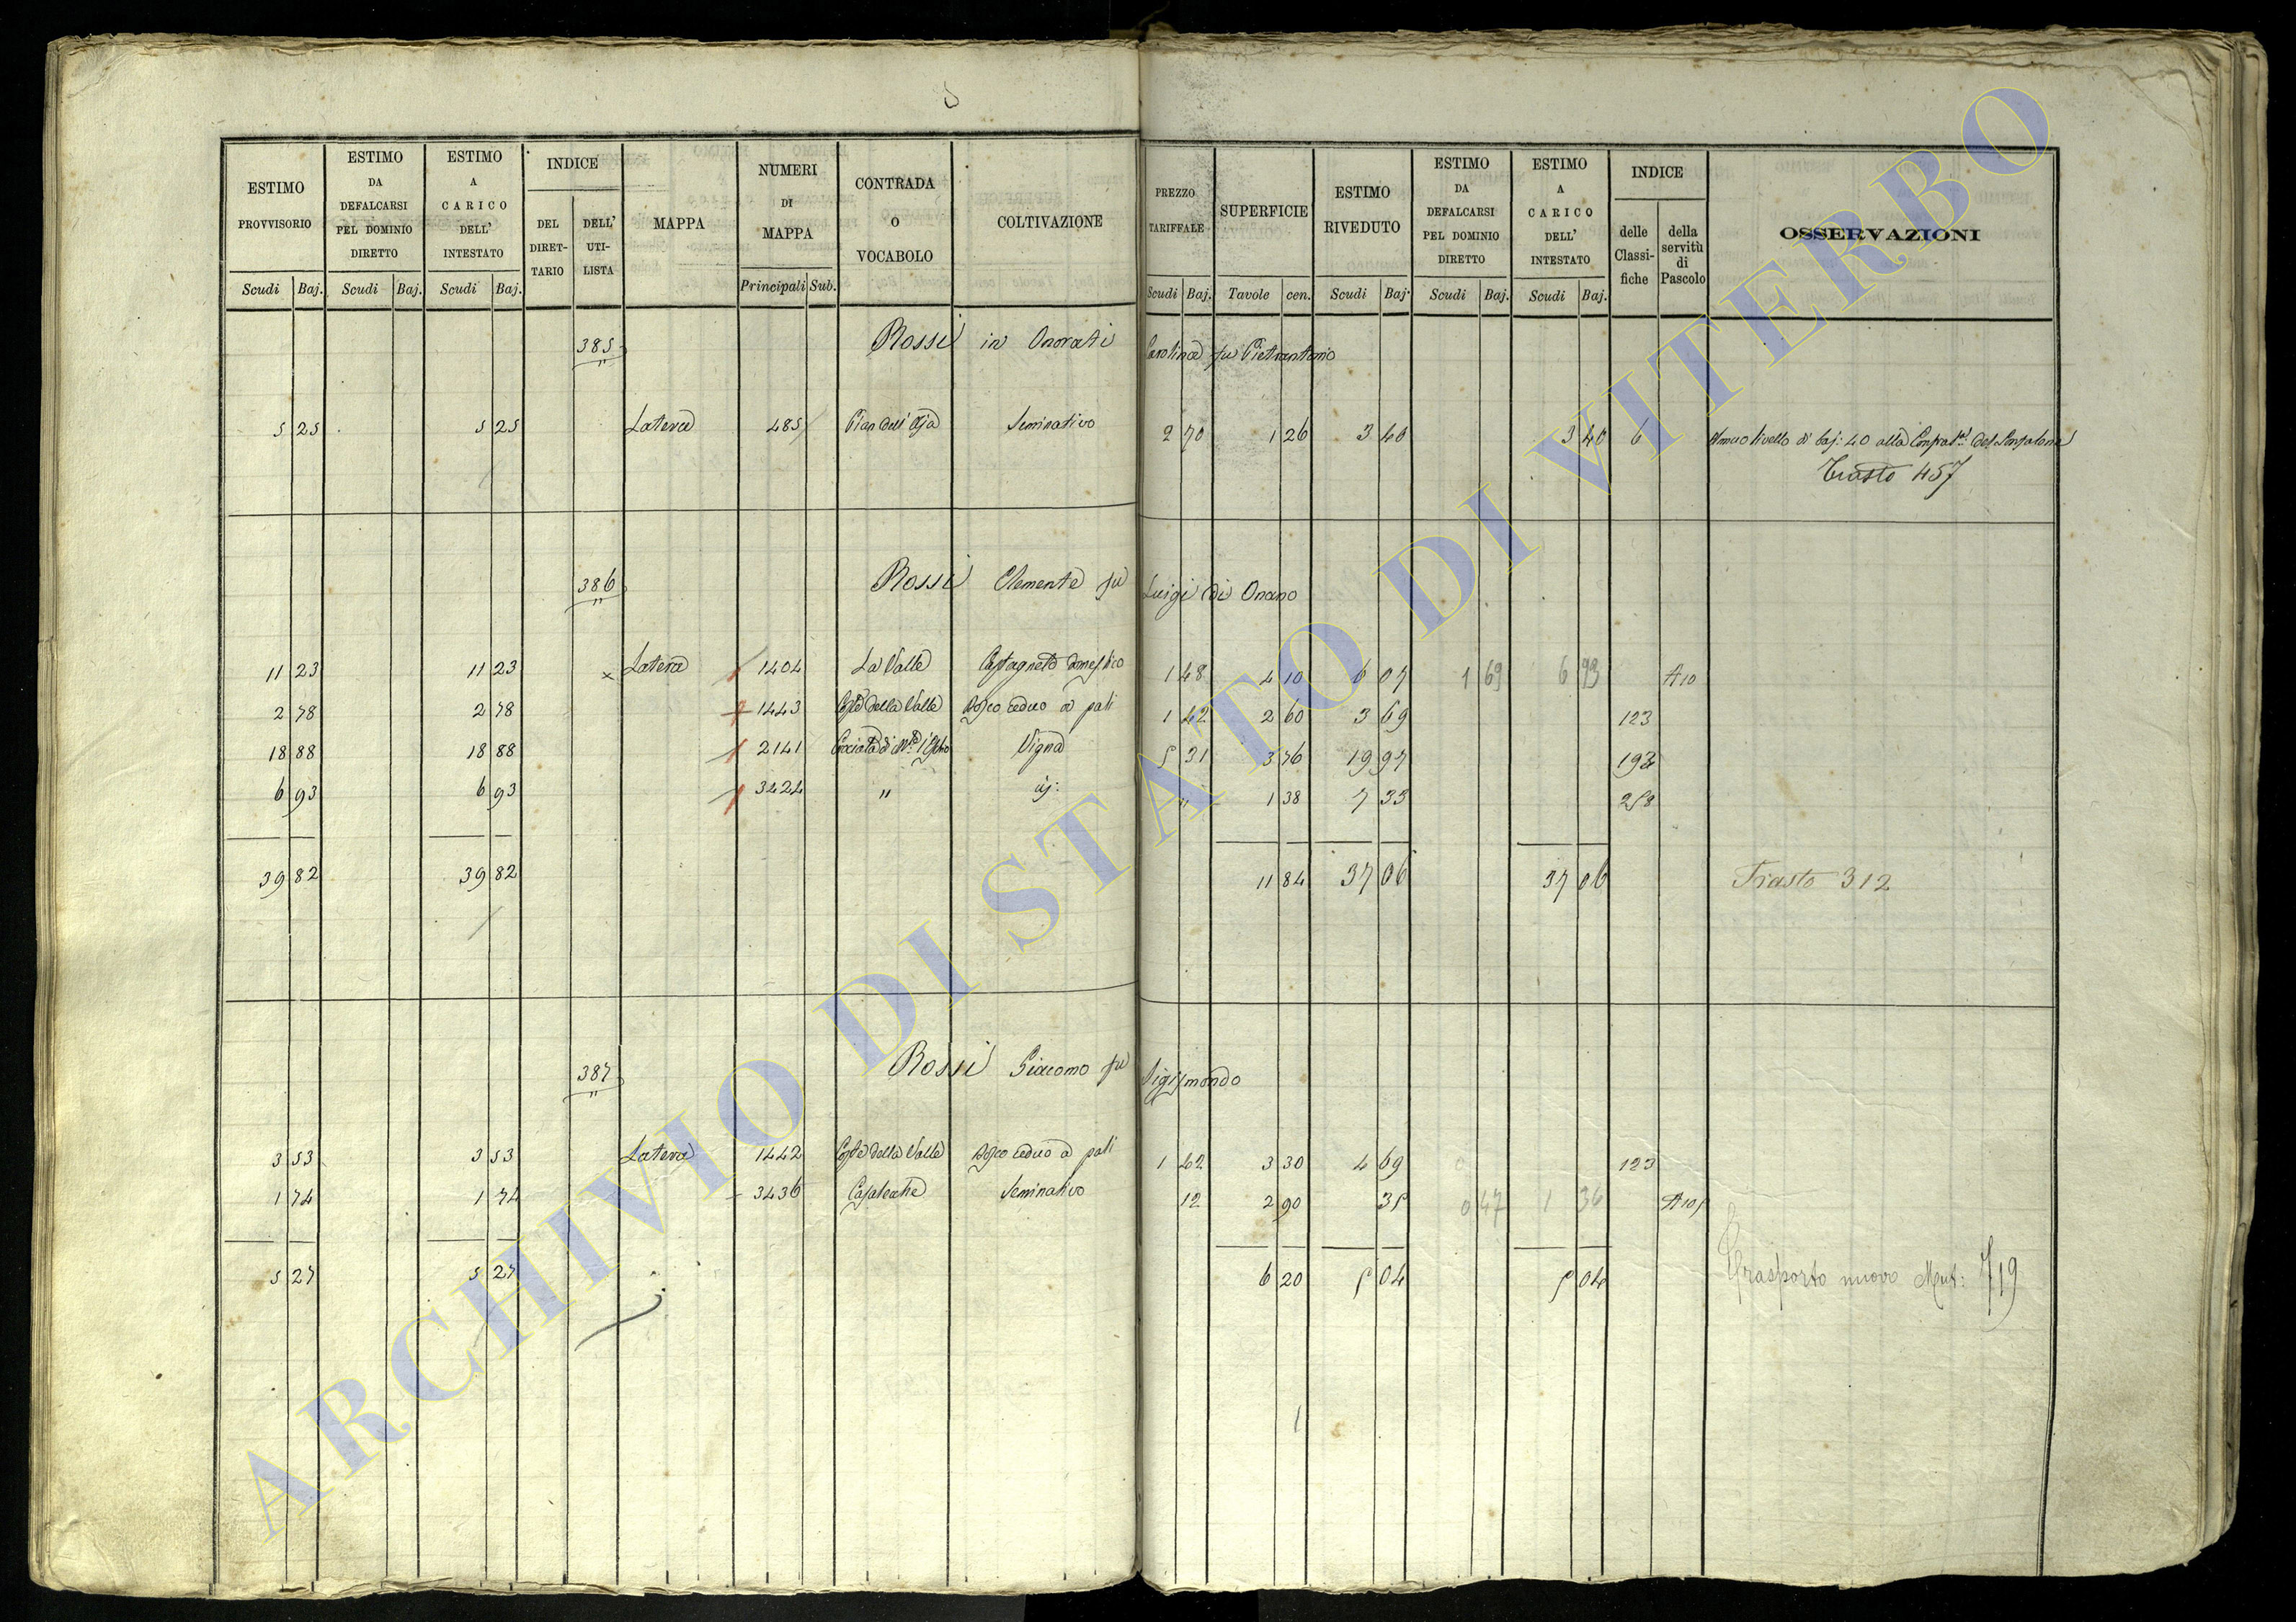 S
ESTIMO PROVVISORIO Scudi Baj.
ESTIMO DA DEFALCARSI PEL DOMINIO DIRETTO Scudi Baj.
ESTIMO A CARICO DELL' INTESTATO Scudi Baj.
INDICE DEL DIRETTARIO DELL' UTILISTA
MAPPA
NUMERI DI MAPPA Principali Sub.
CONTRADA O VOCABOLO
COLTIVAZIONE
PREZZO TARIFFALE Scudi Baj.
SUPERFICIE Tavole cen.
ESTIMO RIVEDUTO Scudi Baj.
ESTIMO DA DEFALCARSI PEL DOMINIO DIRETTO Scudi Baj.
ESTIMO A CARICO DELL' INTESTATO Scudi Baj.
INDICE delle Classifiche della servitù di Pascolo
OSSERVAZIONI
385 Rossi in Onorati Carolina fu Pietrantonio
5 25 5 25 Latera 485 Pian dell' Aja Seminativo 2 70 1 26 3 40 3 40 6 Annuo livello di baj: 40 alla
Trasto 457
386 Rossi Clemente fu Luigi di Onano
11 23 11 23 Latera 1404 La Valle Castagneto domestico 1 48 4 10 6 07 1 69 6 93 A10
2 78 2 78 1443 Costa della Valle Bosco ceduo a pali 1 42 2 60 3 69 123
18 88 18 88 2141 Vigna 5 31 3 76 19 97 193
6 93 6 93 3424 " id: " 1 38 7 33 258
39 82 39 82 11 84 37 06 37 06 Trasto 312
387 Rossi Giacomo fu Sigismondo
3 53 3 53 Latera 1442 Costa della Valle Bosco ceduo a pali 1 42 3 30 4 69 0 123
1 74 1 74 3436 Seminativo 12 2 90 35 0 47 1 36 A105
5 27 5 27 6 20 5 04 5 04 Trasporto nuovo Mut: 719
ARCHIVIO DI STATO DI VITERBO